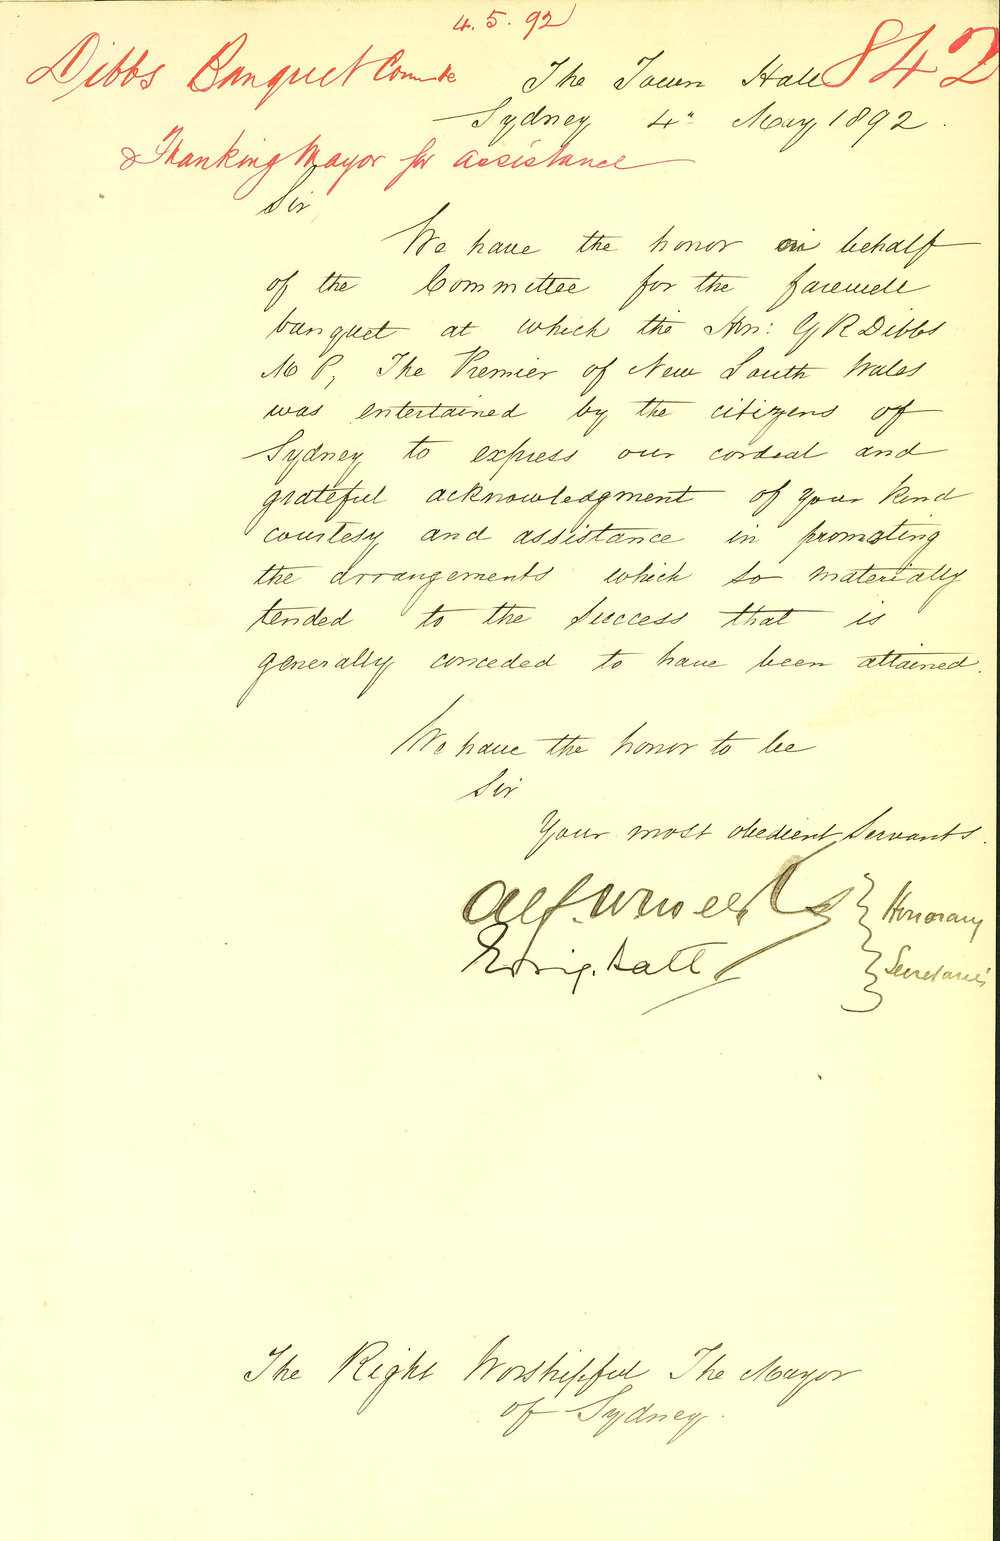 4.5.92
842
Dibbs Banquet Comtte
The Town Hall
Sydney 4" May 1892.
Thanking Mayor for assistance
Sir
We have the honor on behalf
of the Committee for the farewell
banquet at which the Hon: G R Dibbs
M P, The Premier of New South Wales
was entertained by the citizens of
Sydney to express our cordial and
grateful acknowledgment of your kind
courtesy and assistance in promoting
the arrangements which so materially
tended to the success that is
generally conceded to have been attained.
We have the honor to be
Sir
Your most obedient Servants.
Alf.
Honorary
Secretaries
The Right Worshipful The Mayor
of Sydney.